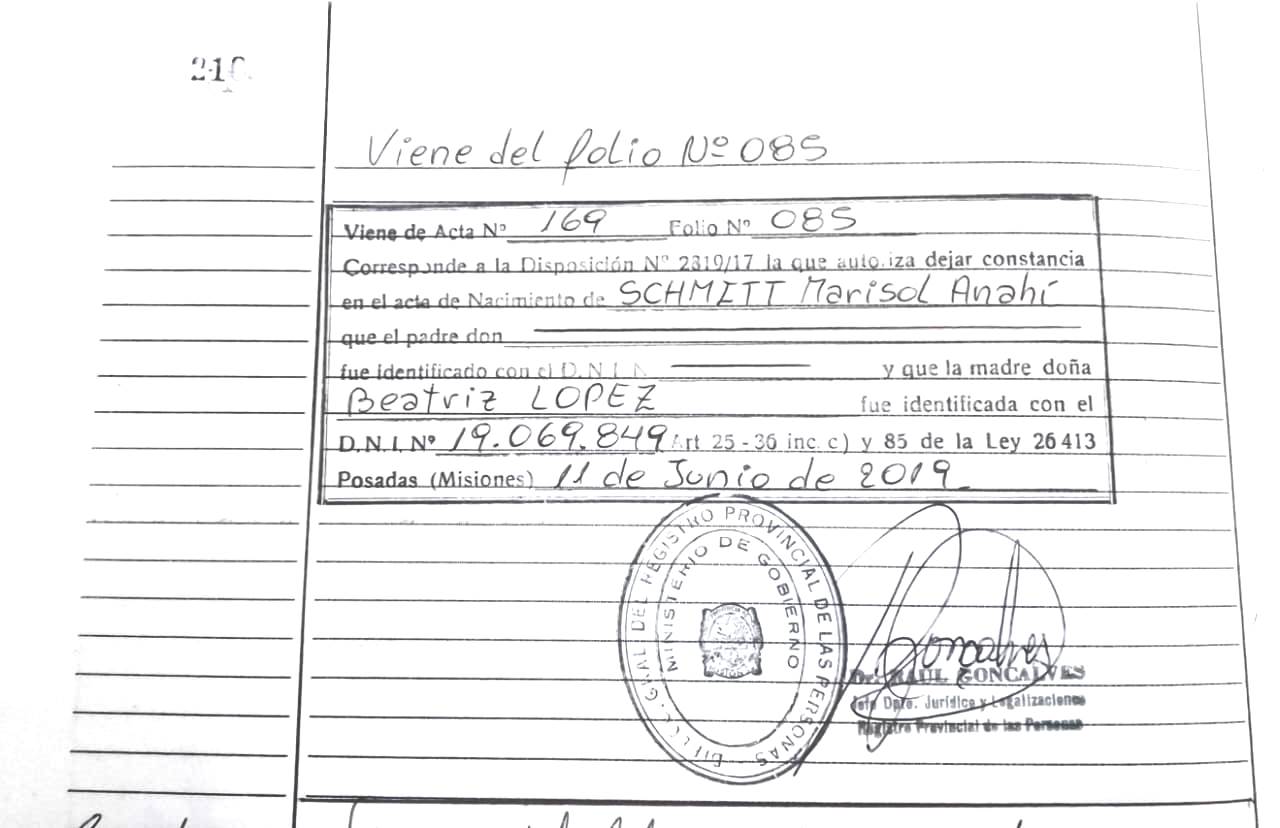 Viene del folio Nº 085
Viene de Acta Nº 169 Folio Nº 085
Corresponde a la Disposición Nº 2319/17 la que autoriza dejar constancia
en el acta de Nacimiento de SCHMITT Marisol Anahí
que el padre don
fue identificado con el D.N.I. N y que la madre doña
Beatriz LOPEZ fue identificada con el
D.N.I. Nº 19.069.849 Art 25 - 36 inc. c) y 85 de la Ley 26413
Posadas (Misiones) 11 de Junio de 2019
GRAL DEL REGISTRO PROVINCIAL DE LAS PERSONAS
MINISTERIO DE GOBIERNO
Goncalves
Dr. RAUL GONCALVES
Jefe Dpto. Jurídico y Legalizaciones
Registro Provincial de las Personas